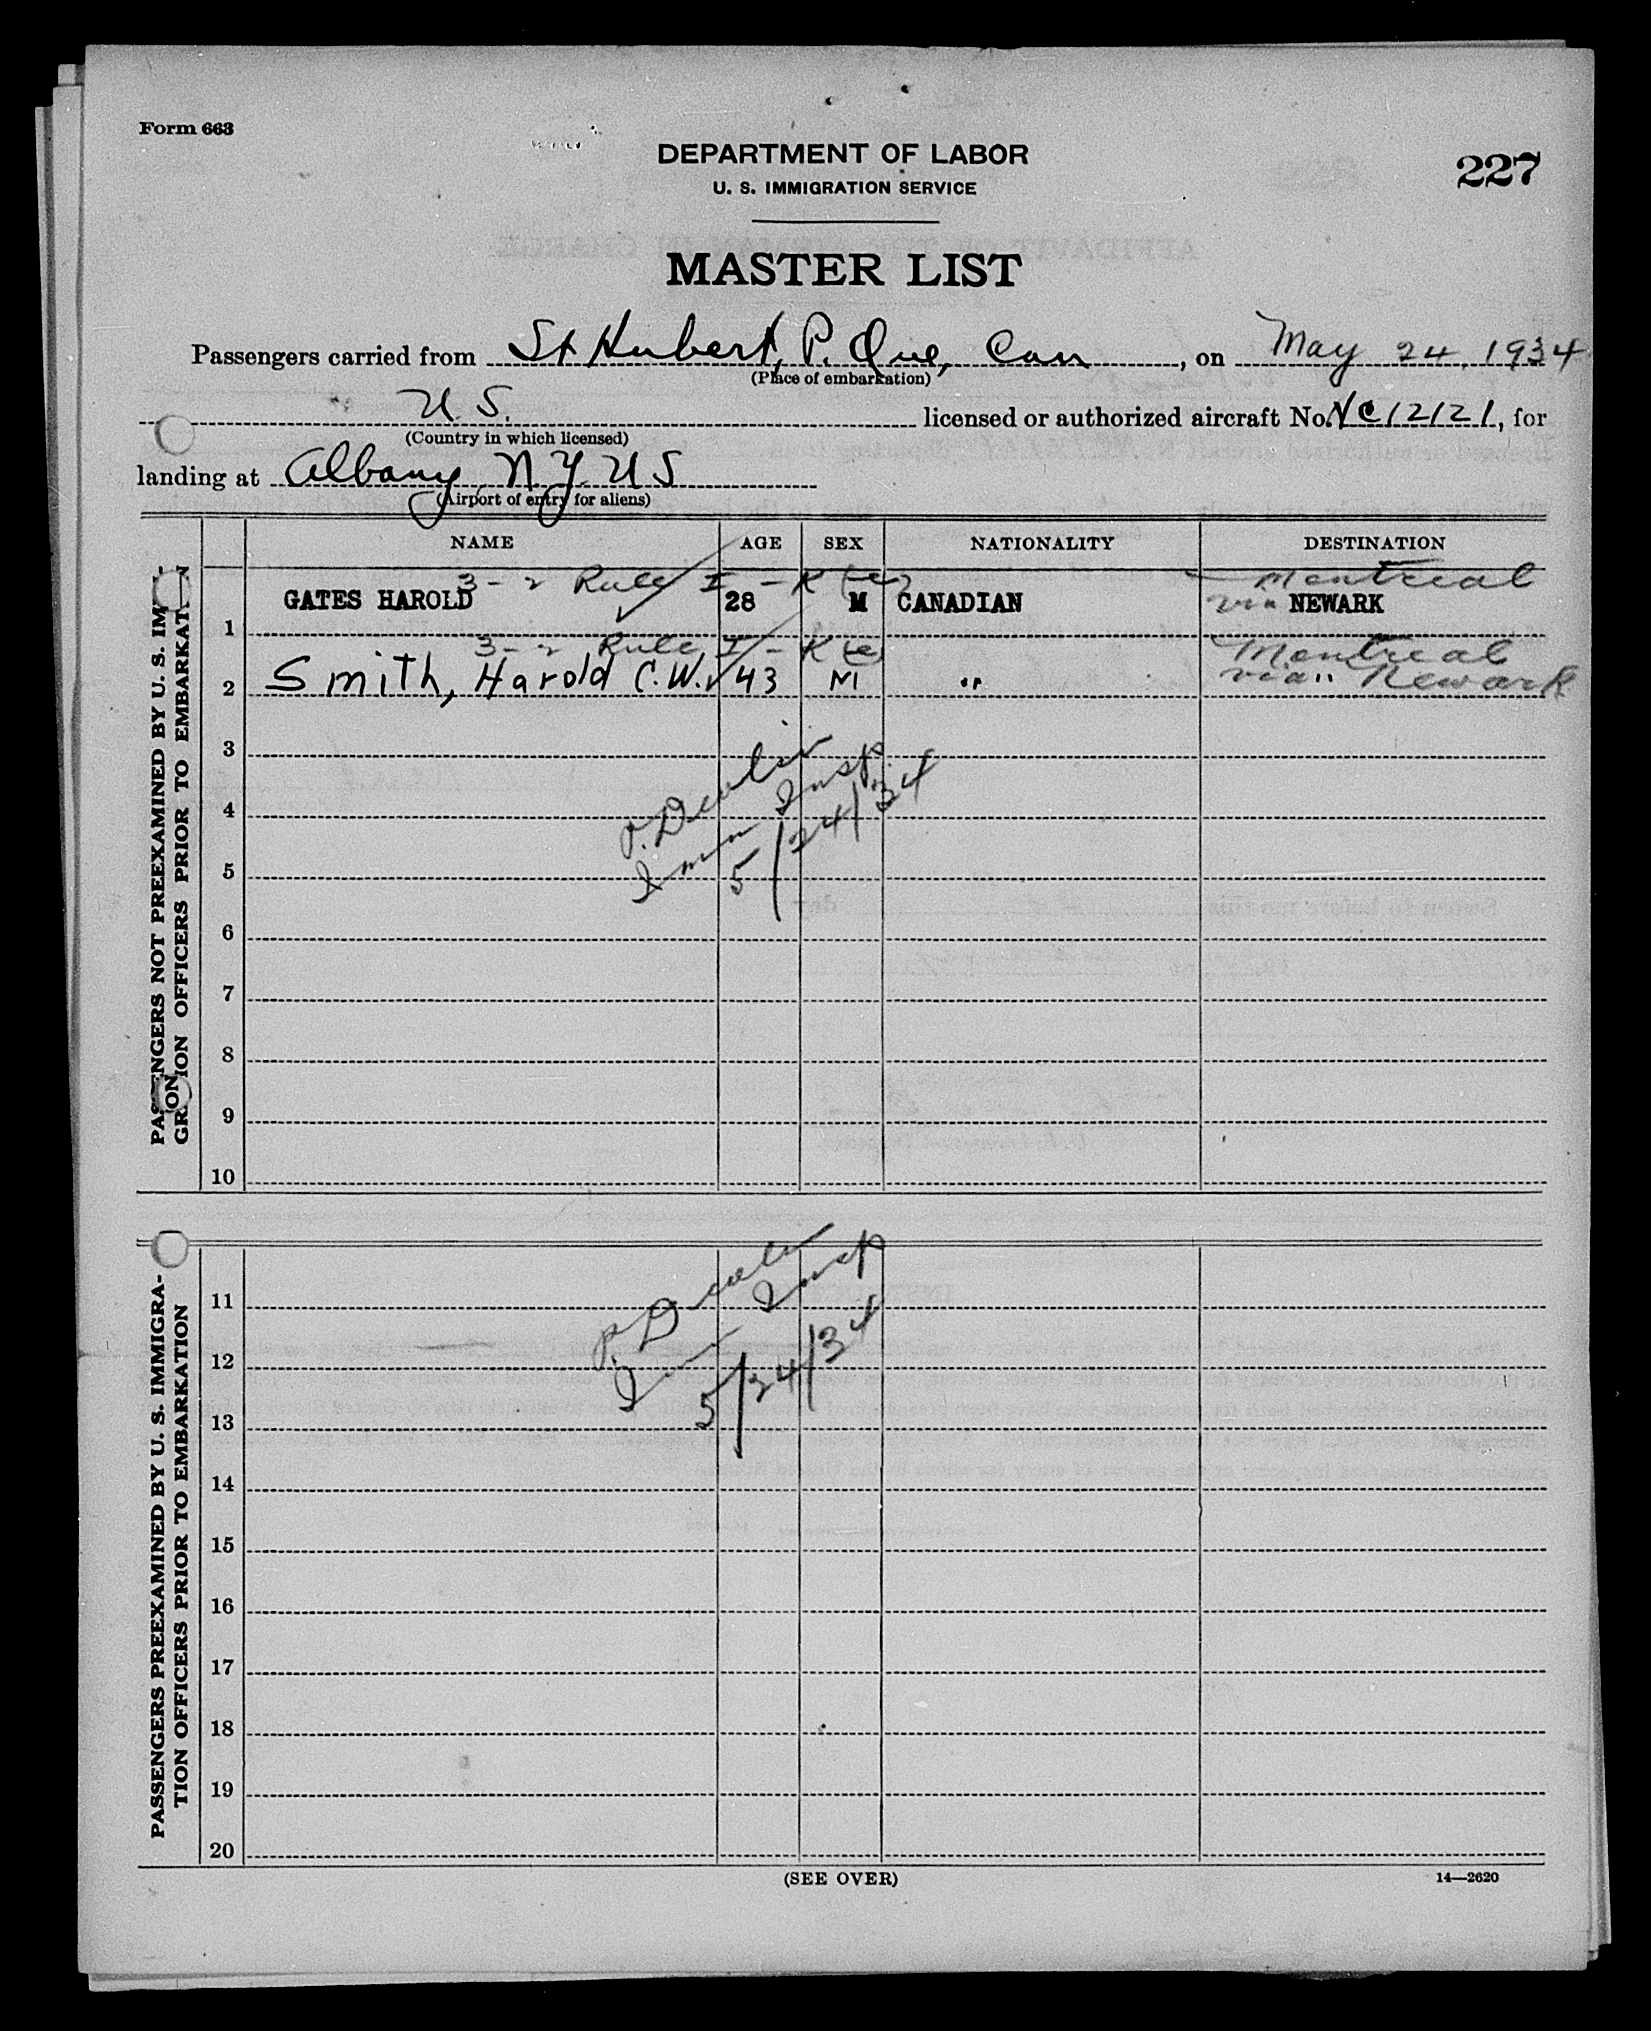 Form 663
DEPARTMENT OF LABOR
227
U. S. IMMIGRATION SERVICE
MASTER LIST
Passengers carried from St Hubert, P. Que, Can, on May 24, 1934
(Place of embarkation)
U. S. licensed or authorized aircraft No. NC12121, for
(Country in which licensed)
landing at Albany N.Y. U S
(Airport of entry for aliens)
NAME AGE SEX NATIONALITY DESTINATION
PASSENGERS NOT PREEXAMINED BY U. S. IMMI-
GRATION OFFICERS PRIOR TO EMBARKATION
3-2 Rule I - K (e) Montreal
1 GATES HAROLD 28 M CANADIAN via NEWARK
3-2 Rule I - K (e) Montreal
2 Smith, Harold C.W. 43 M " via " Newark
3
4
5
6
7
8
9
10
P. Devlin
Imm Insp.
5/24/34
PASSENGERS PREEXAMINED BY U. S. IMMIGRA-
TION OFFICERS PRIOR TO EMBARKATION
11
12
13
14
15
16
17
18
19
20
P. Devlin
Imm Insp
5/24/34
(SEE OVER)
14—2620